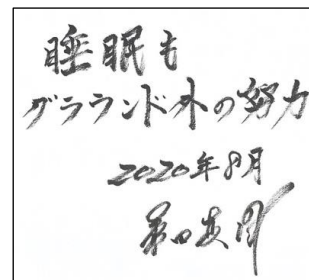 睡眠も
グラウンド外の努力
2020年8月